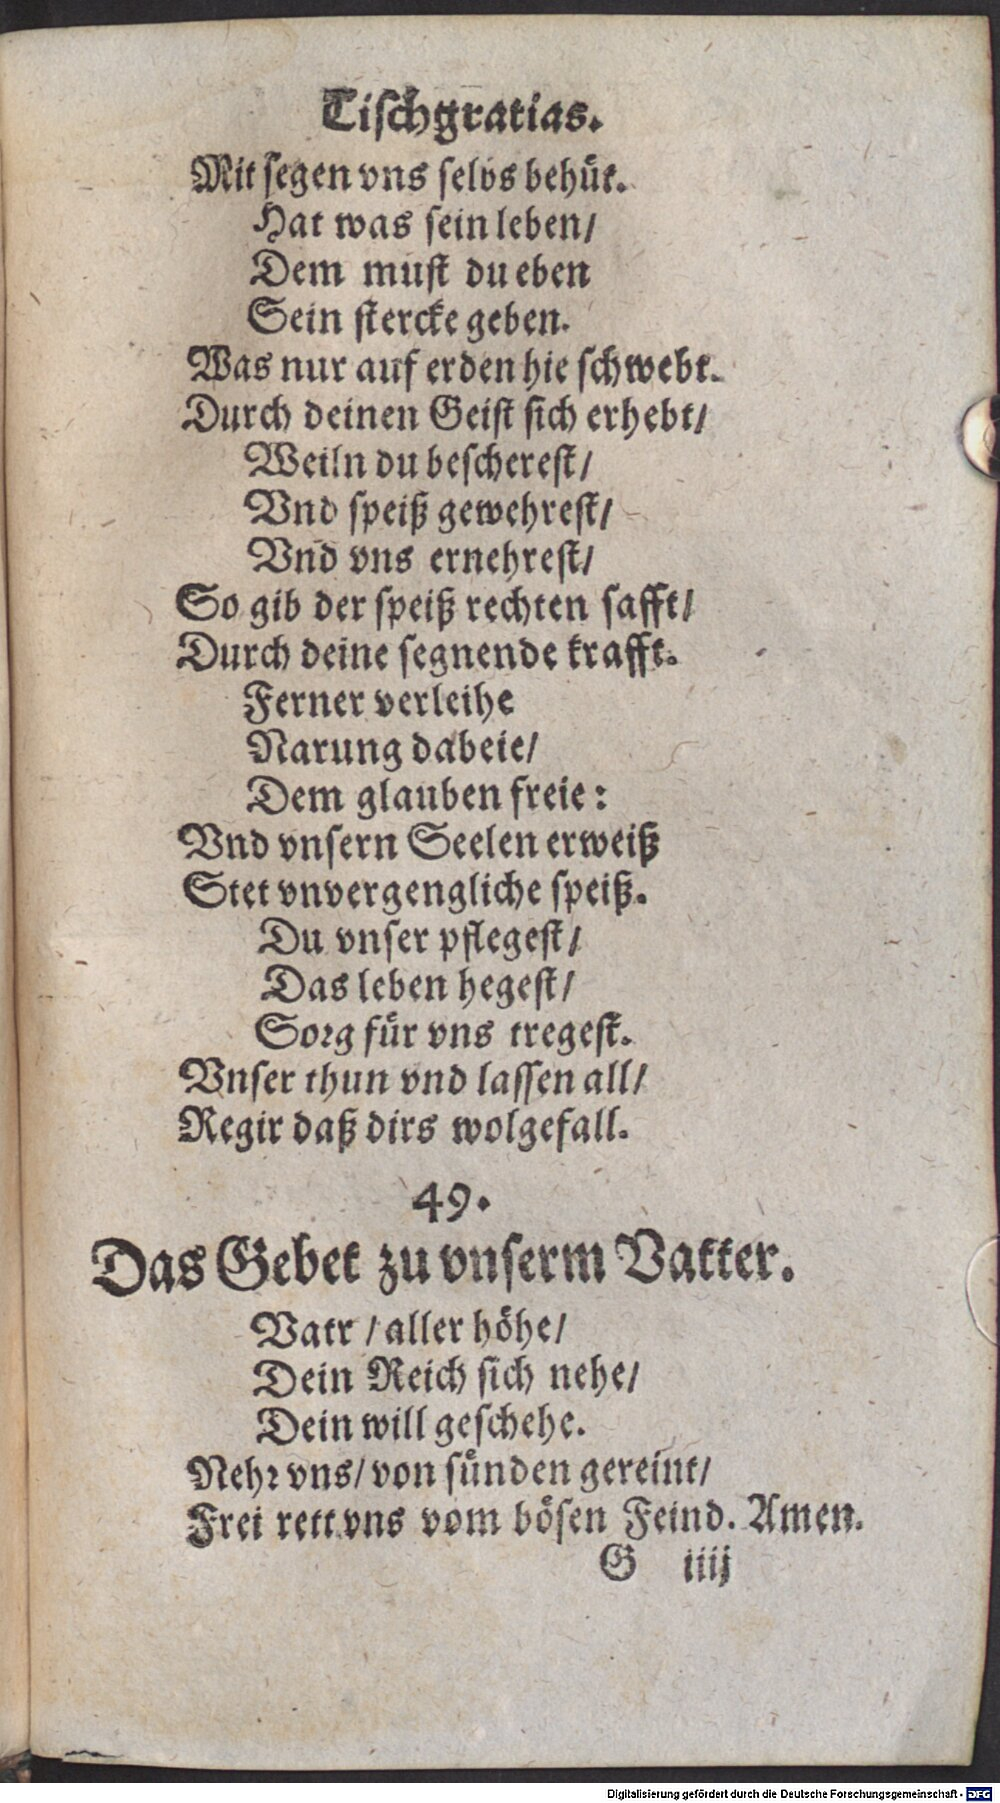 Tischgratias.
Mit segen vns selbs behüt.
Hat was sein leben/
Dem must du eben
Sein stercke geben.
Was nur auf erden hie schwebt.
Durch deinen Geist sich erhebt/
Weiln du bescherest/
Vnd speiß gewehrest/
Vnd vns ernehrest/
So gib der speiß rechten safft/
Durch deine segnende krafft.
Ferner verleihe
Narung dabeie/
Dem glauben freie:
Vnd vnsern Seelen erweiß
Stet vnvergengliche speiß.
Du vnser pflegest/
Das leben hegest/
Sorg für vns tregest.
Vnser thun vnd lassen all/
Regir daß dirs wolgefall.
49.
Das Gebet zu vnserm Vatter.
Vatr / aller höhe/
Dein Reich sich nehe/
Dein will geschehe.
Nehr vns/ von sünden gereint/
Frei rett vns vom bösen Feind. Amen.
G iiij
Digitalisierung gefördert durch die Deutsche Forschungsgemeinschaft - DFG